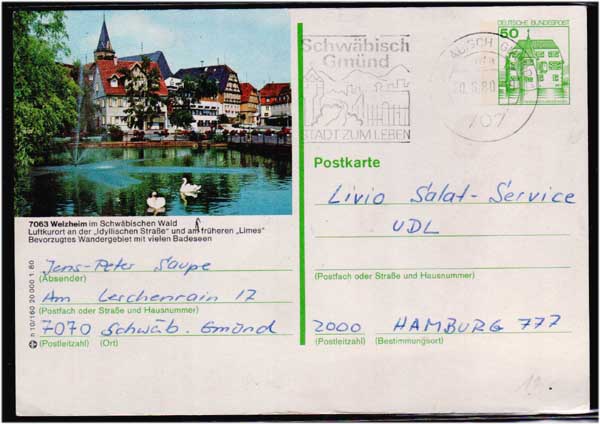 DEUTSCHE BUNDESPOST
50
Schwäbisch
Gmünd
STADT ZUM LEBEN
707
Postkarte
Livio Salat-Service
UDL
(Postfach oder Straße und Hausnummer)
2000 HAMBURG 777
(Postleitzahl) (Bestimmungsort)
7063 Welzheim im Schwäbischen Wald
Luftkurort an der „Idyllischen Straße" und am früheren „Limes"
Bevorzugtes Wandergebiet mit vielen Badeseen
Jens-Peter Saupe
(Absender)
Am Lerchenrain 17
(Postfach oder Straße und Hausnummer)
7070 Schwäb. Gmünd
(Postleitzahl) (Ort)
n 10/160 20 000 1 80